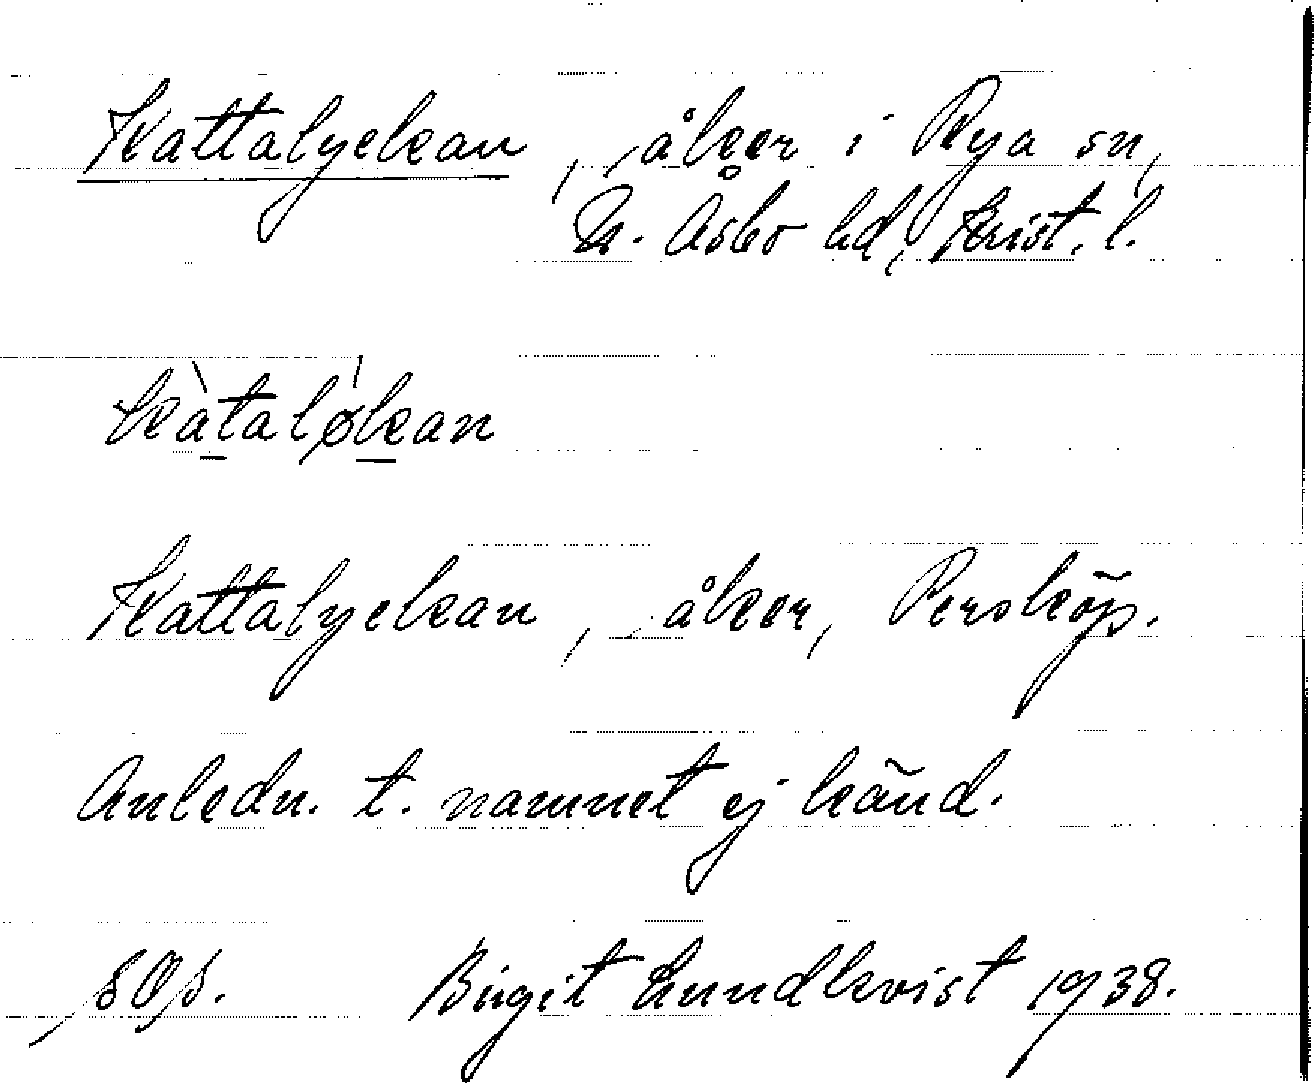 Kattalyckan, åker i Rya sn,
N. Åsbo hd, Krist. l.
kàtalø̍kan
Kattalyckan, åker, Persköp.
Anledn. t. namnet ej känd.
SOS. Birgit Lundkvist 1938.